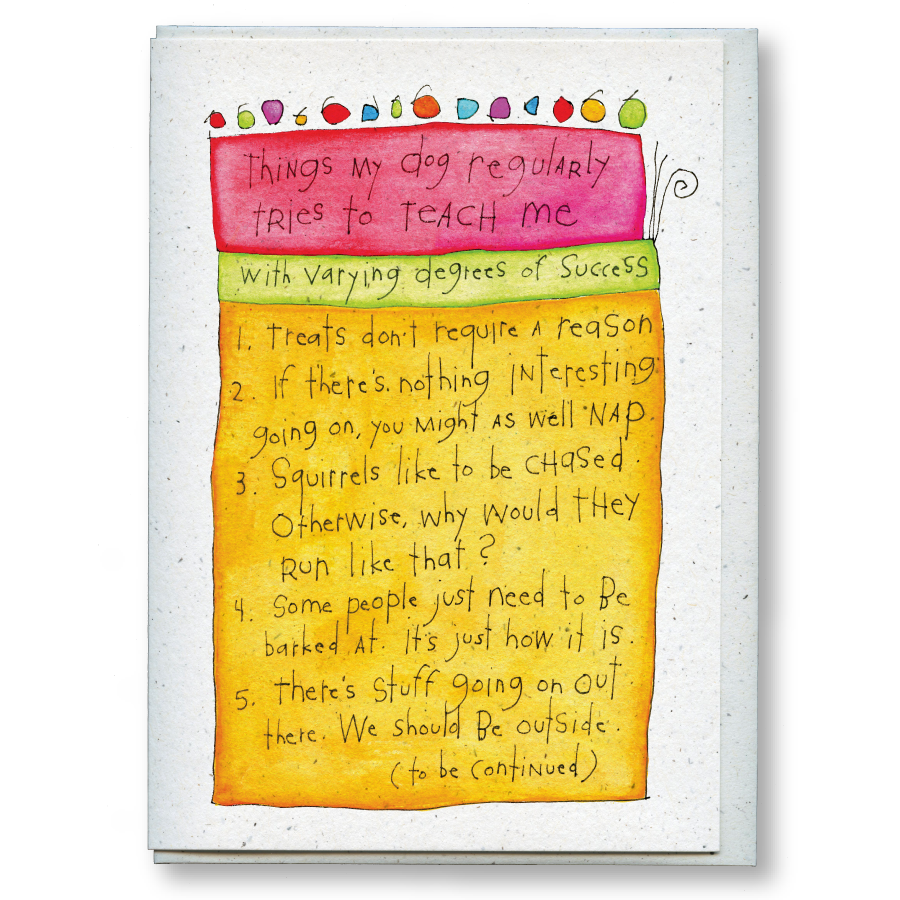 Things my dog regularly
tries to teach me
with varying degrees of success
1. Treats don't require a reason
2. If there's nothing interesting
going on, you might as well nap.
3. Squirrels like to be chased.
Otherwise, why would they
run like that?
4. Some people just need to be
barked at. It's just how it is.
5. There's stuff going on out
there. We should be outside.
(to be continued)